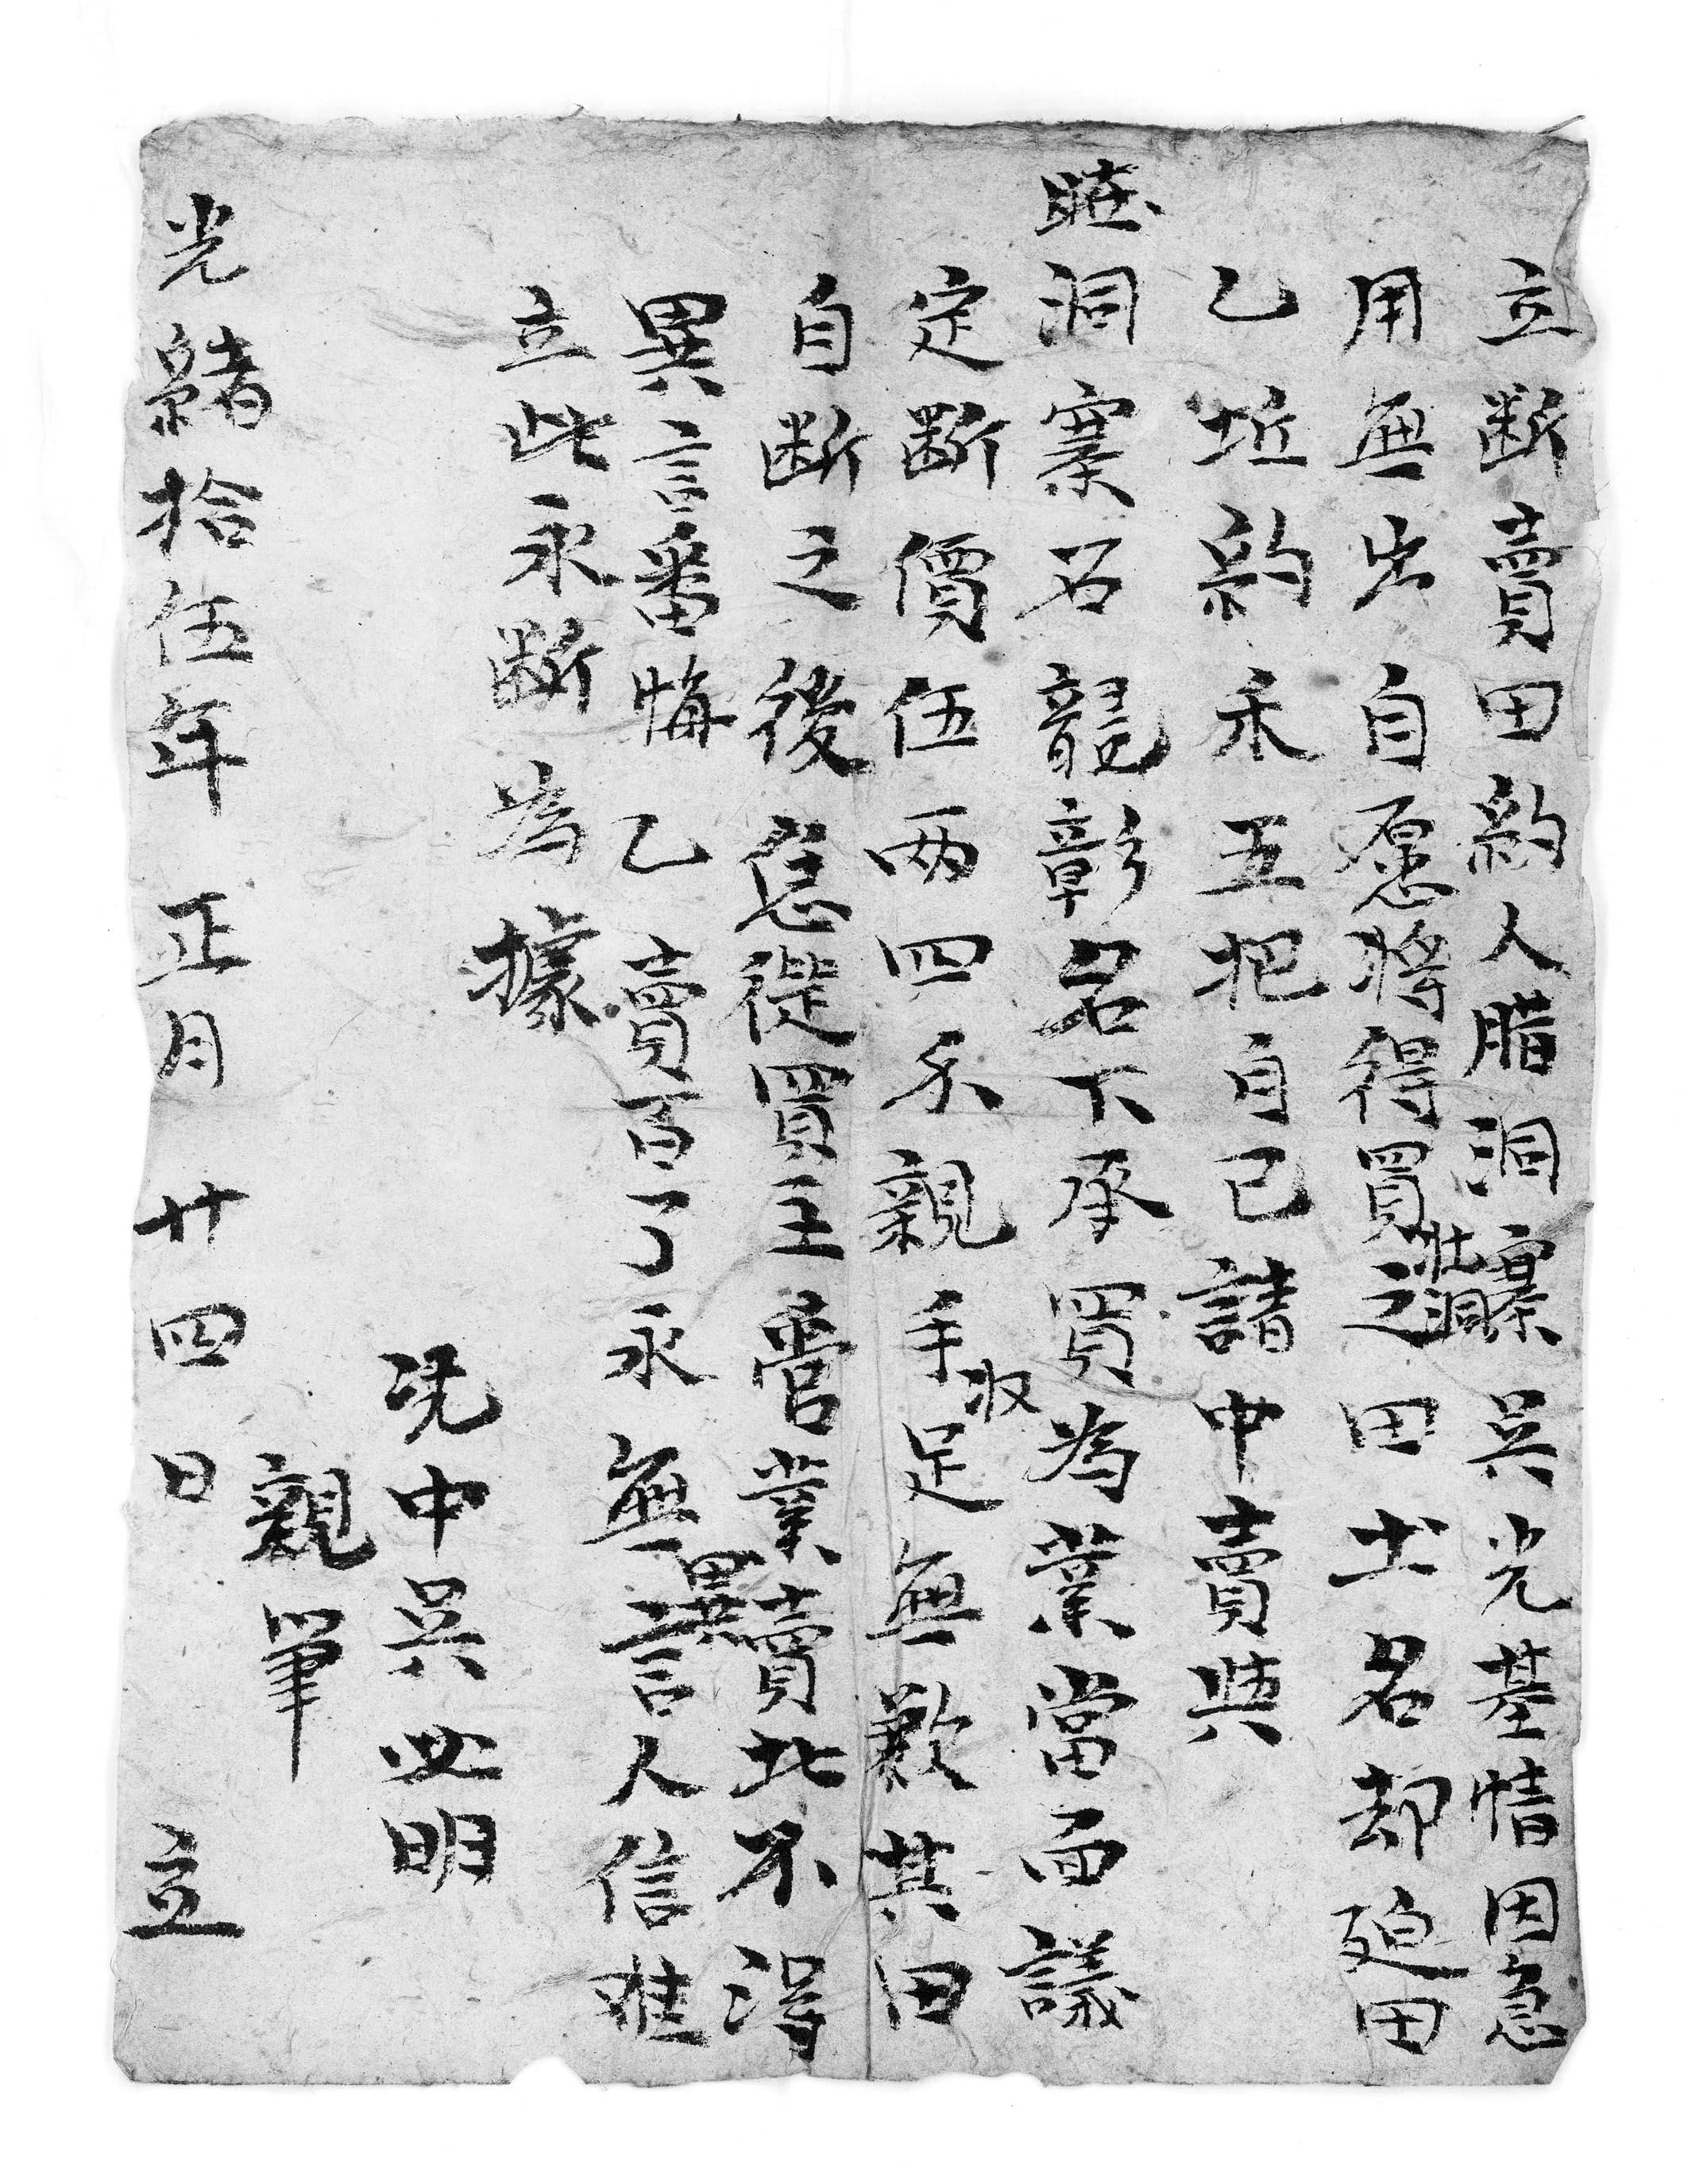 立断賣田約人腊洞寨吴光基情因急
用無出自愿將得買壯洞之田土名却廹田
乙坵約禾五把自己請中賣與
洞寨石龍彰名下承買為業當面議
定断價伍両四分親手收足無歉其田
自断之後恁從買主管業賣此不得
異言番悔乙賣百了永無異言人信难
立此永断為據
凭中吴世明
親筆
光緒拾伍年正月廿四日立